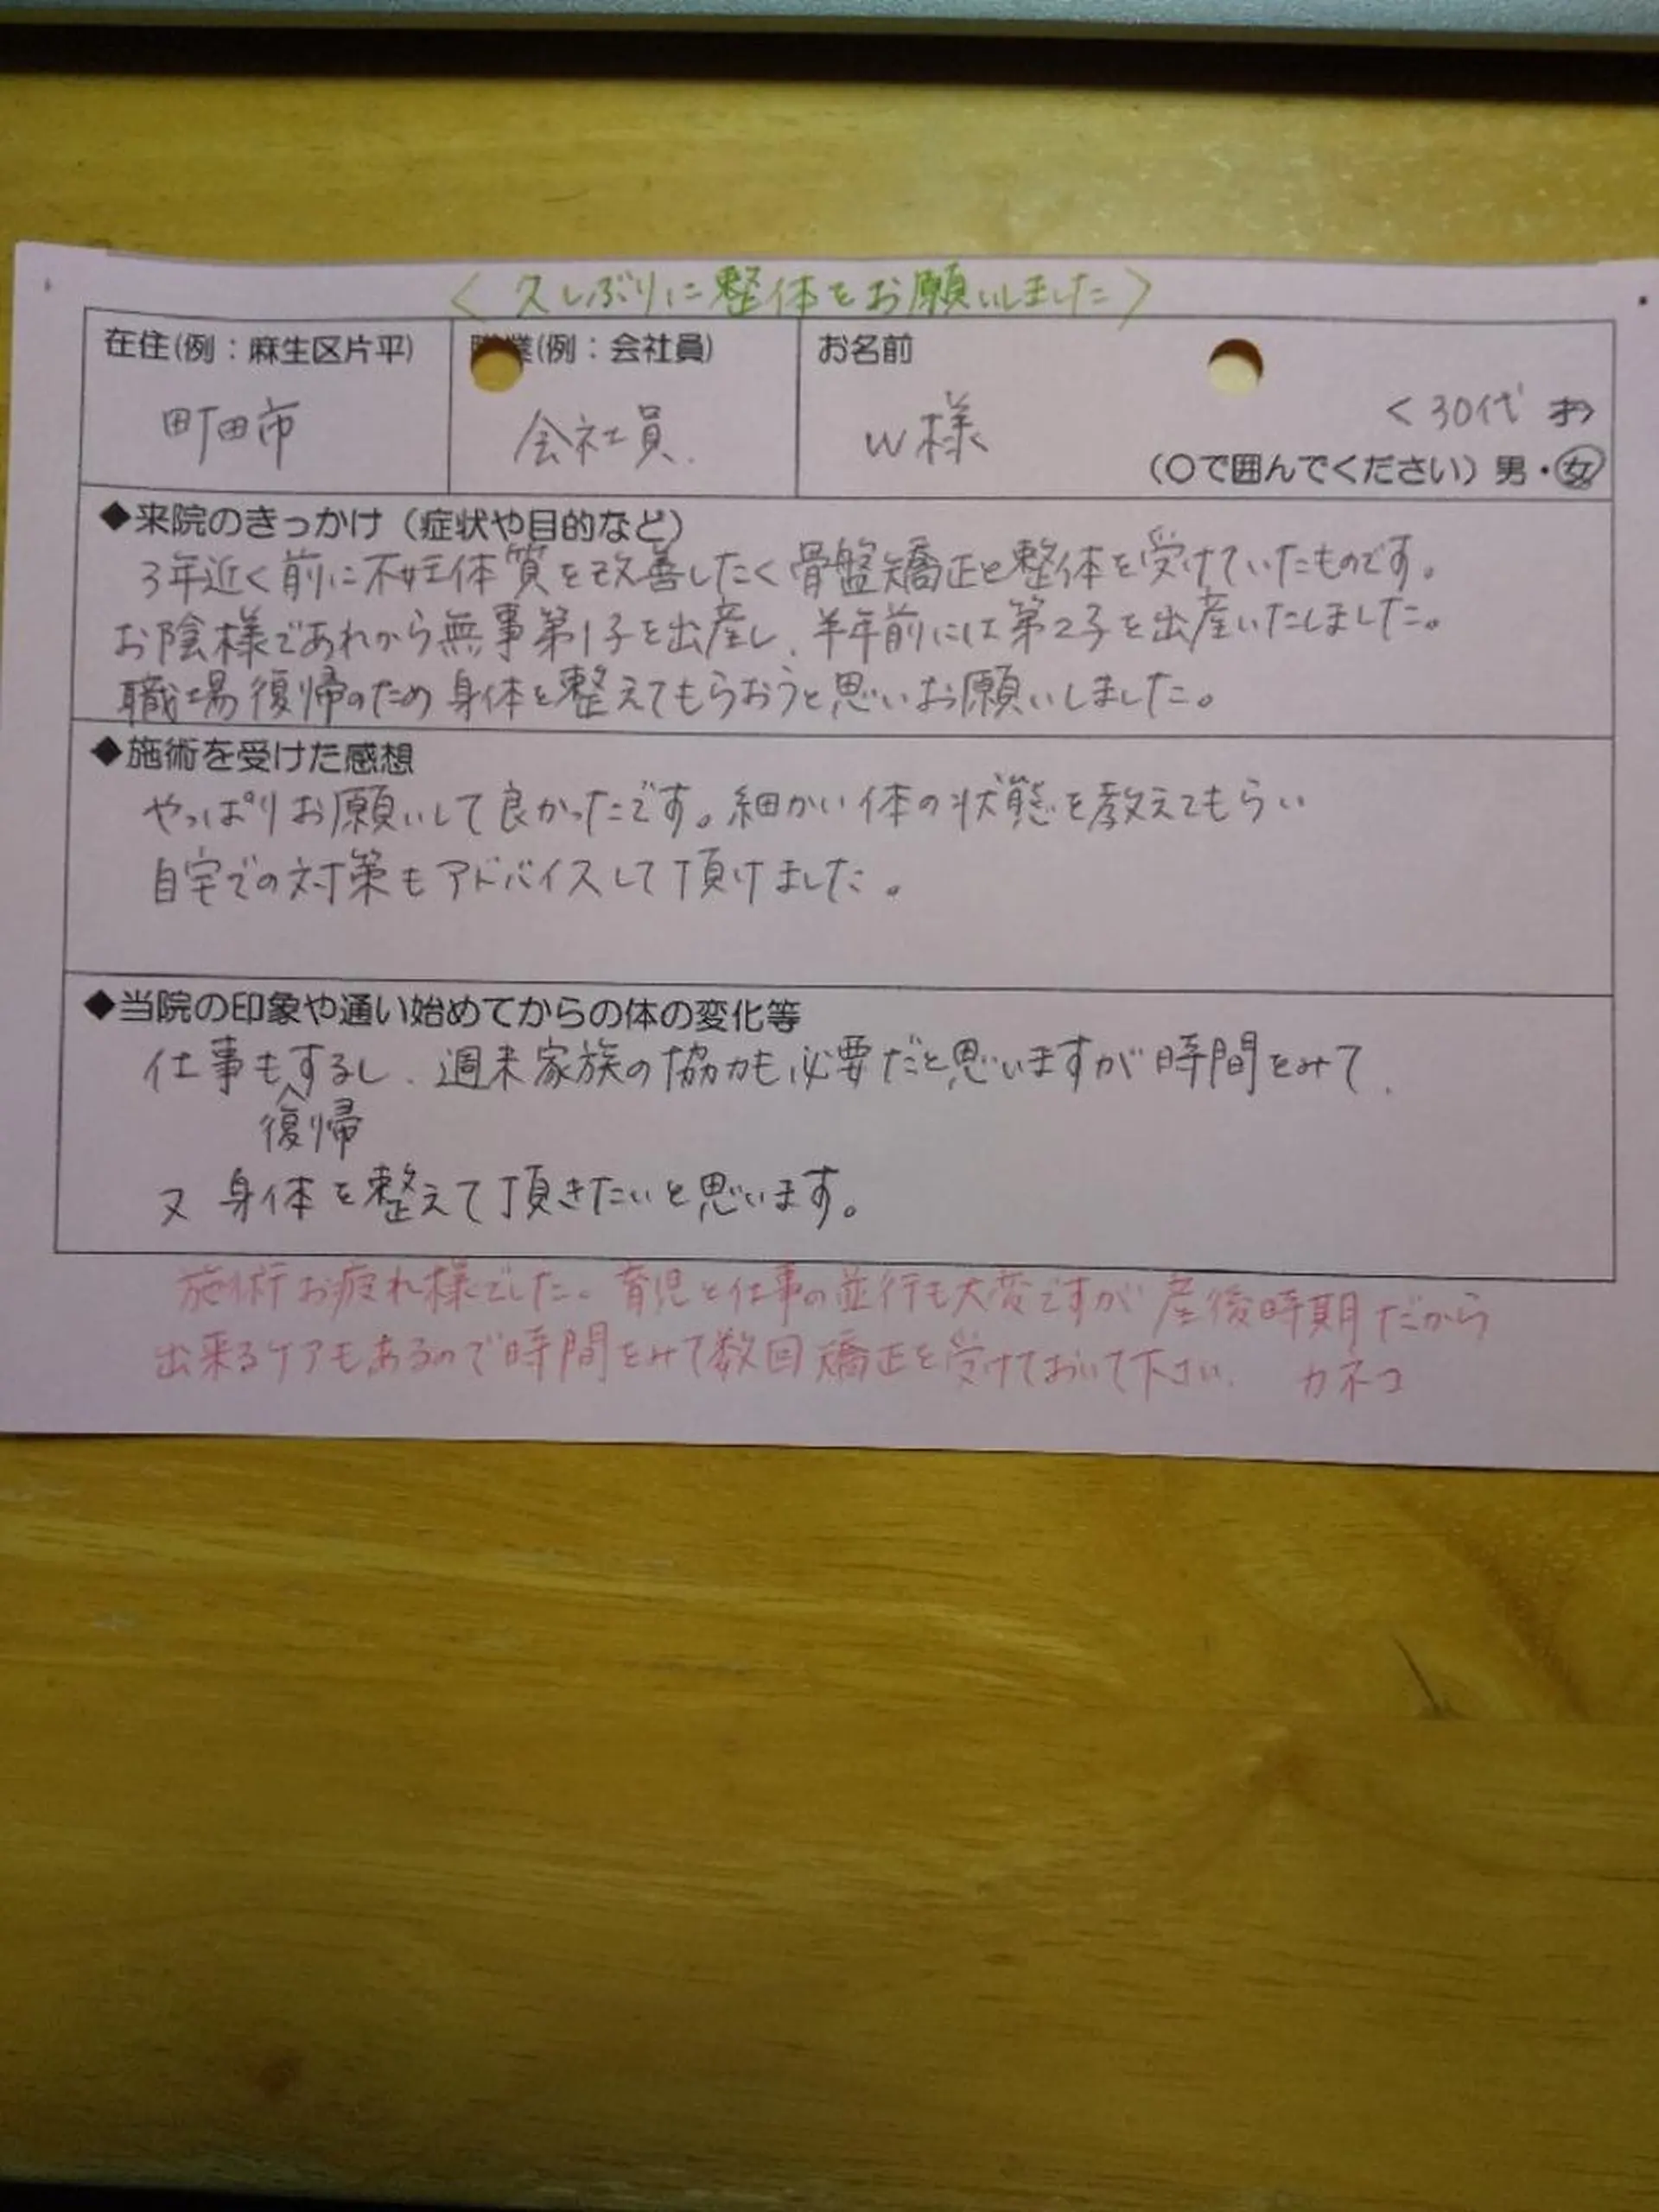 ＜久しぶりに整体をお願いしました＞
在住(例：麻生区片平)
業(例：会社員)
お名前
町田市
会社員.
W様
＜30代
(〇で囲んでください) 男・女
◆来院のきっかけ（症状や目的など）
3年近く前に不妊体質を改善したく骨盤矯正と整体を受けていたものです。
お陰様であれから無事第1子を出産し、半年前には第2子を出産いたしました。
職場復帰のため身体を整えてもらおうと思いお願いしました。
◆施術を受けた感想
やっぱりお願いして良かったです。細かい体の状態を教えてもらい
自宅での対策もアドバイスして頂けました。
◆当院の印象や通い始めてからの体の変化等
仕事もするし、週末家族の協力も必要だと思いますが時間をみて、
復帰
又 身体を整えて頂きたいと思います。
施術お疲れ様でした。育児と仕事の並行も大変ですが産後時期だから
出来るケアもあるので時間をみて数回矯正を受けておいて下さい. カネコ